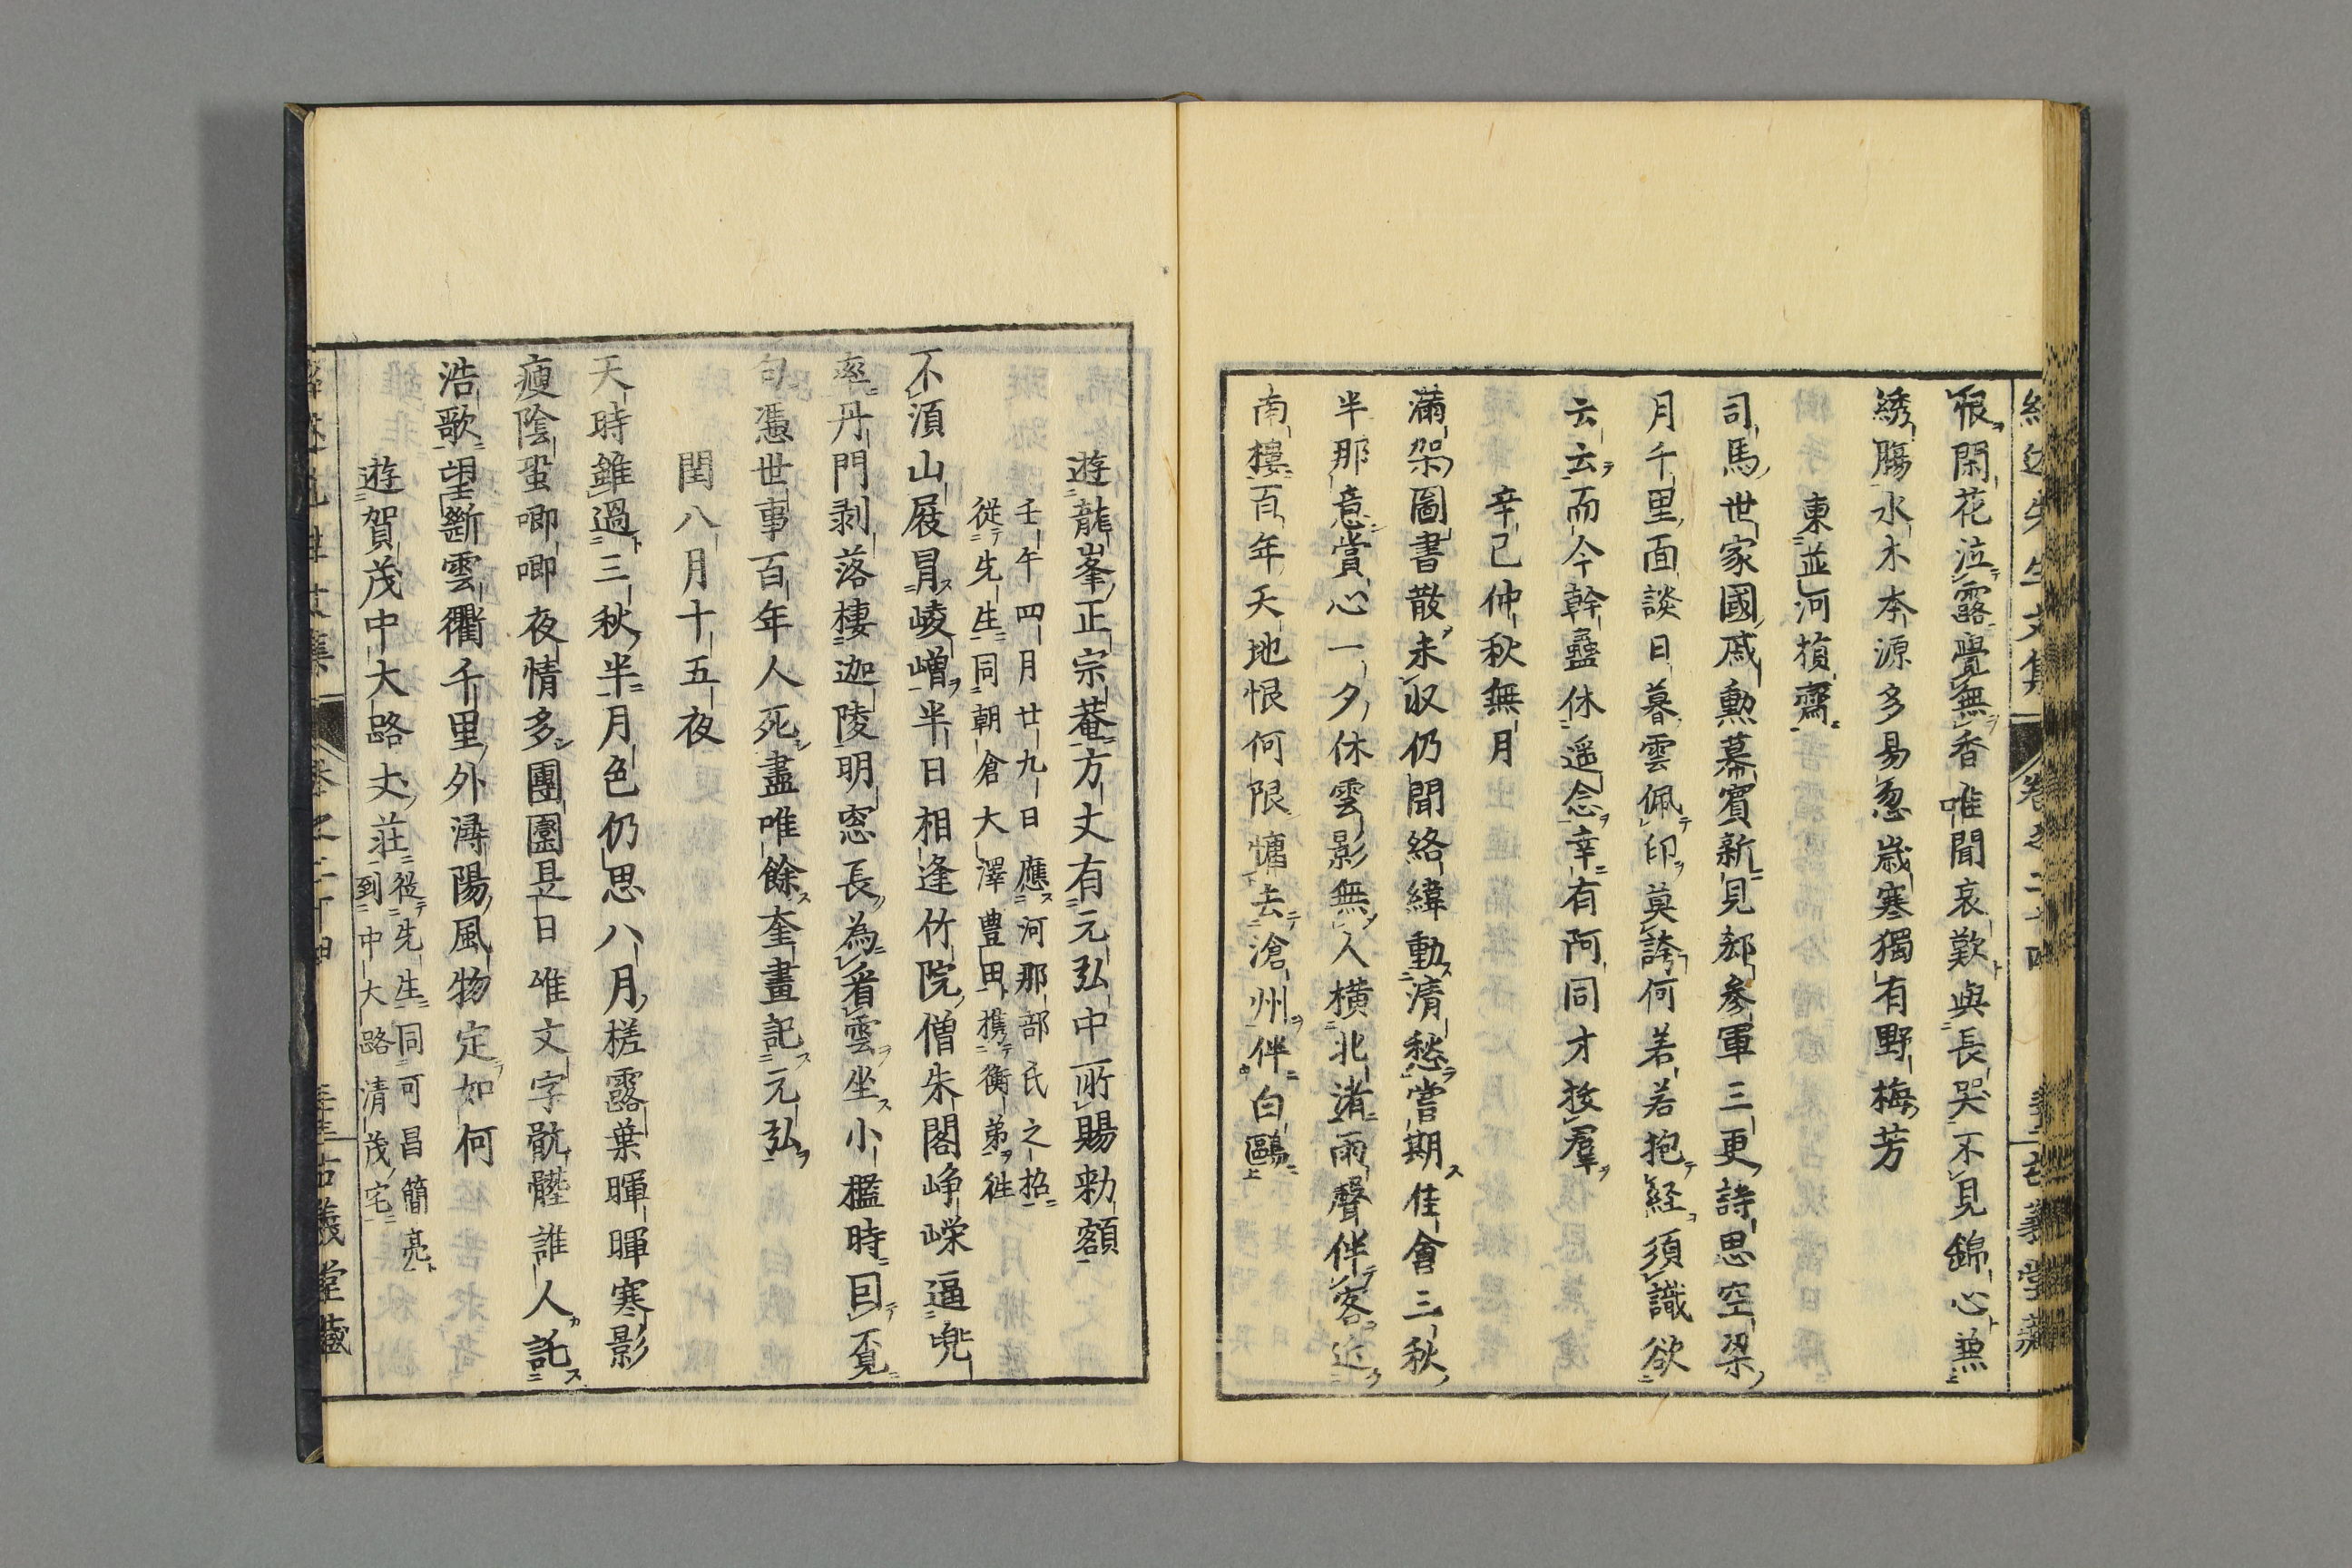 紹述先生文集 卷之二十四 古義堂藏
恨閑花泣露覺無香唯聞哀歎與長哭不見錦心兼
綉膓水木本源多易忽歲寒獨有野梅芳
東並河損齋
司馬世家國戚勲幕賓新見郄參軍三更詩思空梁
月千里面談日暮雲佩印莫誇何若若抱経須識欲
云云而今幹蠱休遥念幸有阿同才拔羣
辛己仲秋無月
滿架圖書散未収仍聞絡緯動清愁嘗期佳會三秋
半那意賞心一夕休雲影無人橫北渚雨聲伴客近
南樓百年天地恨何限慵去滄州伴白鷗
遊龍峯正宗菴方丈有元弘中所賜勅額
壬午四月廿九日應河那部氏之招
從先生同朝倉大澤豊田携衡弟徃
不湏山屐冐崚嶒半日相逢竹院僧朱閣崢嶸逼兜
率丹門剥落棲迦陵明窓長為看雲坐小檻時囙覓
句憑世事百年人死盡唯餘奎畫記元弘
閏八月十五夜
天時雖過三秋半月色仍思八月槎露葉暉暉寒影
瘦陰蛩唧唧夜情多團團是日唯文字骯髒誰人託
浩歌望斷雲衢千里外潯陽風物定如何
遊賀茂中大路丈荘
從先生同可昌簡亮
到中大路清茂宅
紹述先生文集 卷之二十四 古義堂藏